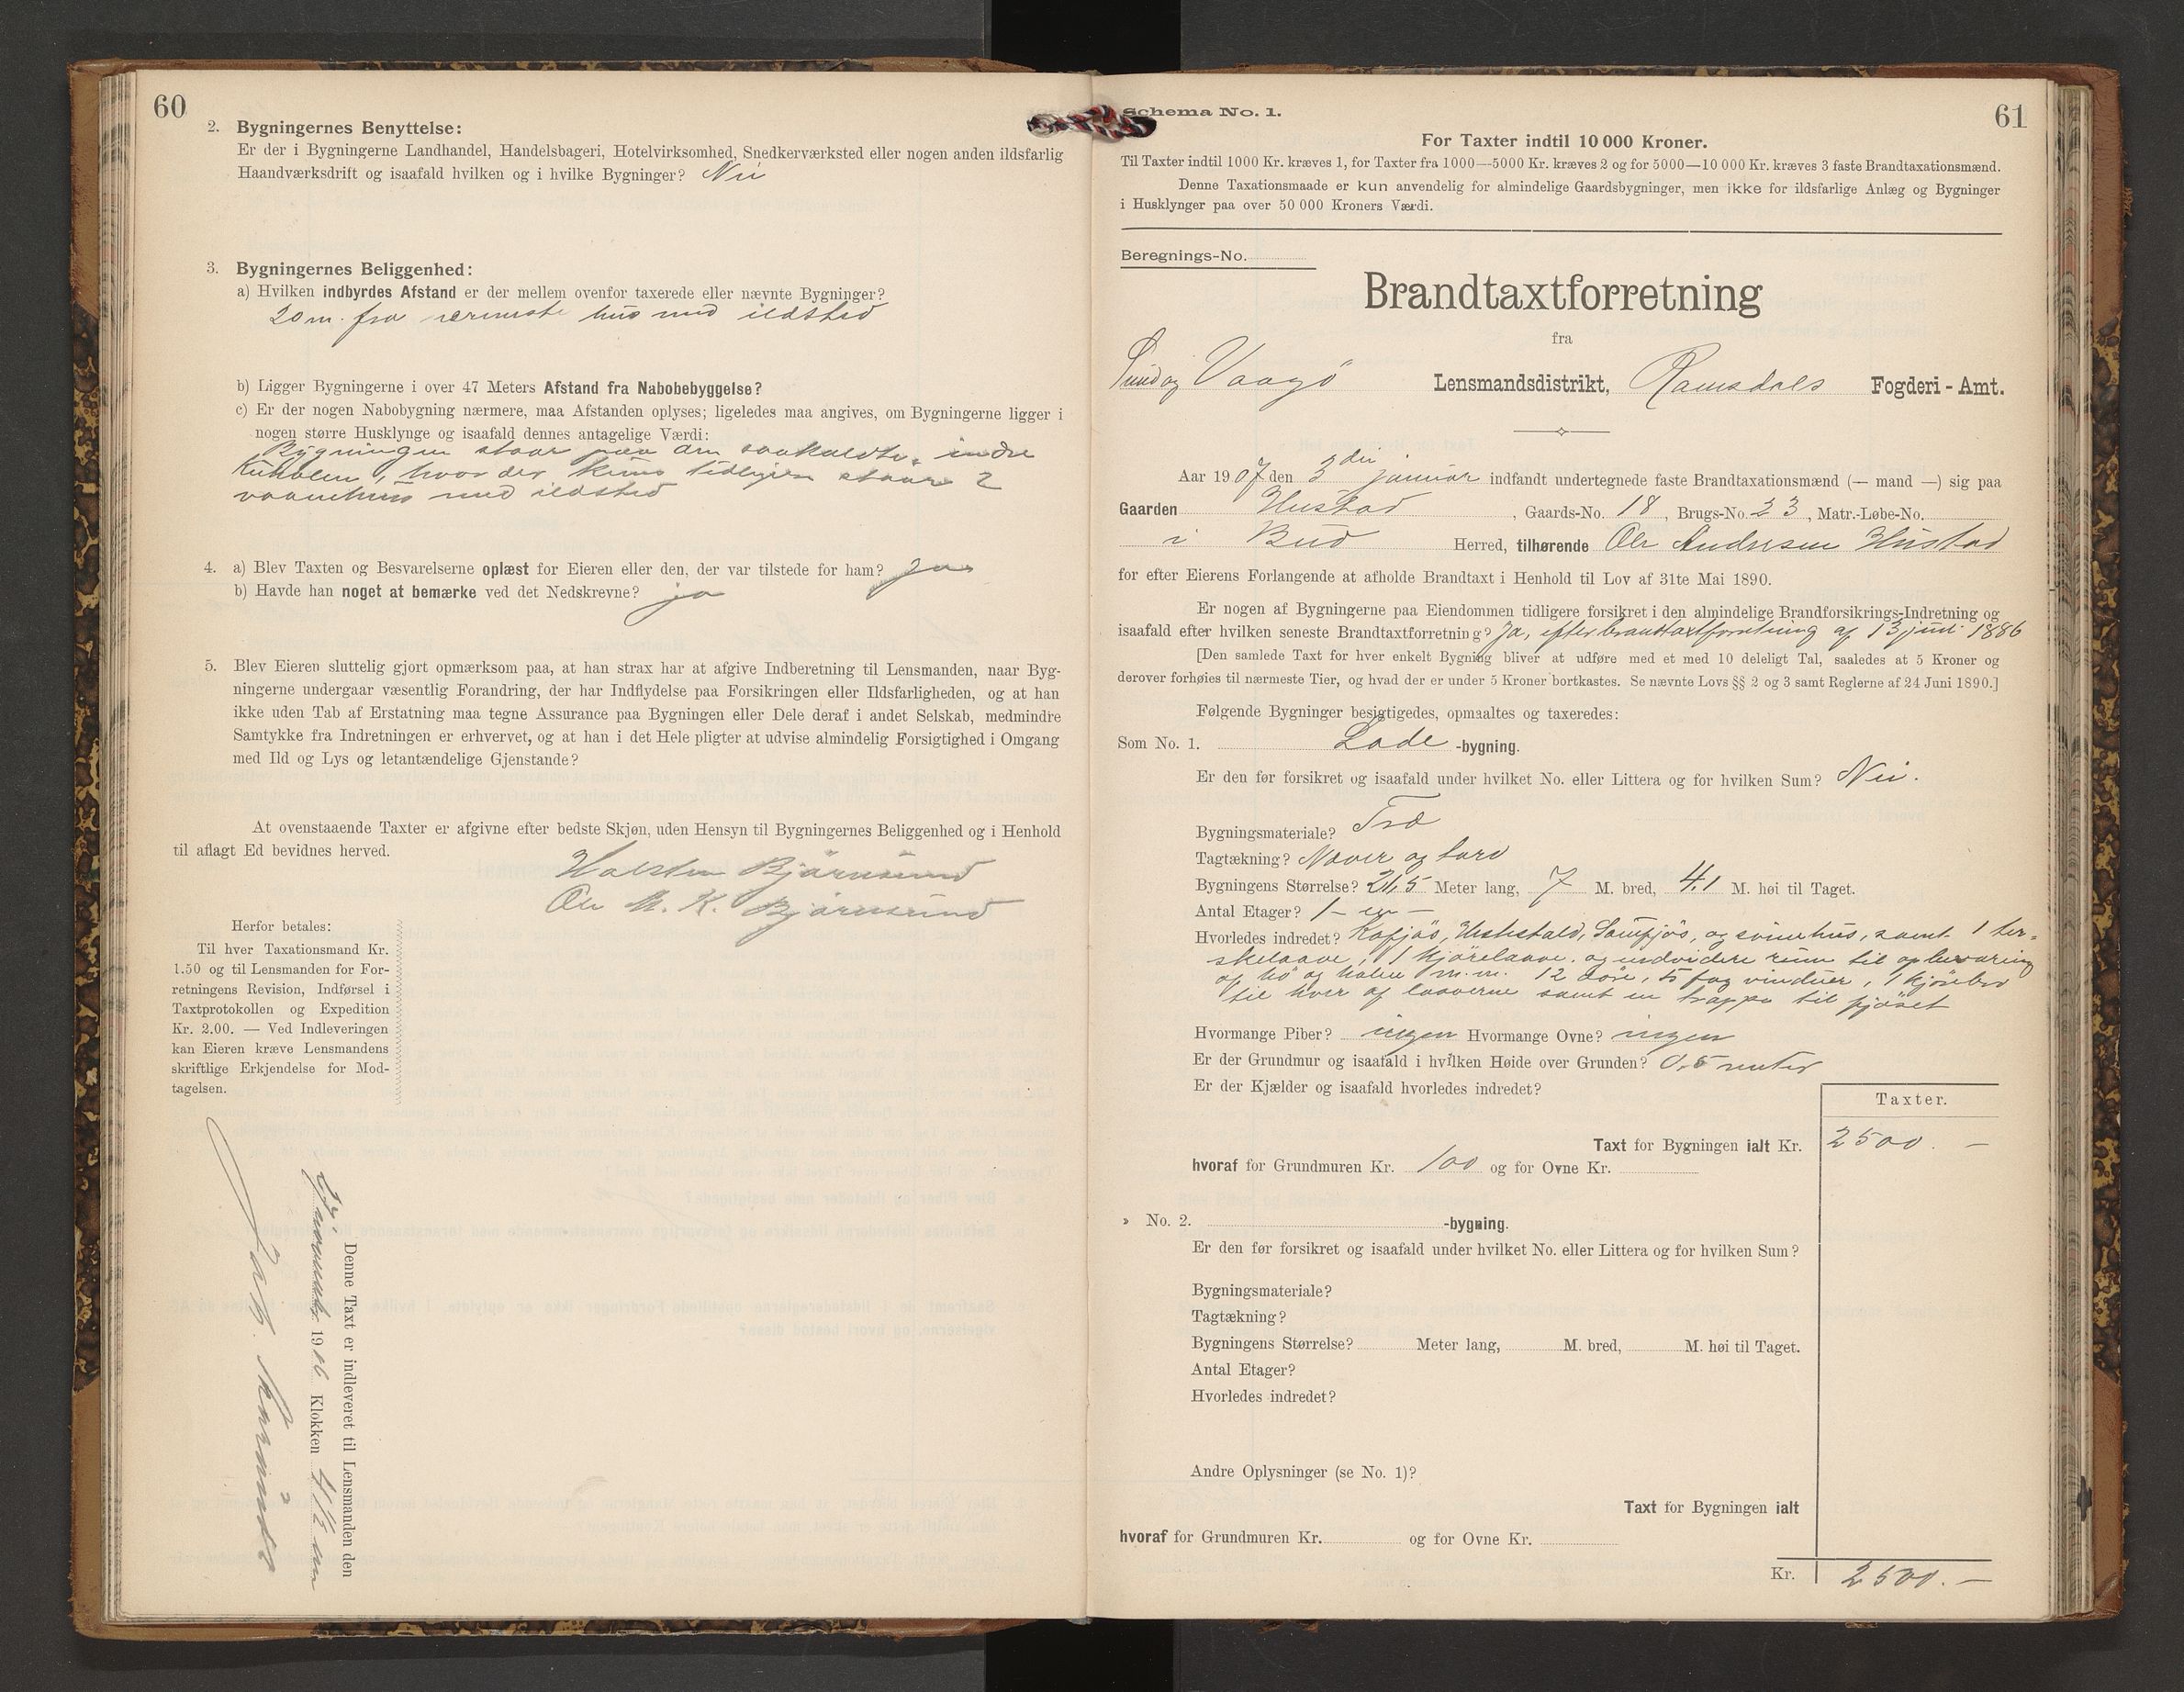 60
2. Bygningernes Benyttelse:
Er der i Bygningerne Landhandel, Handelsbageri, Hotelvirksomhed, Snedkerværksted eller nogen anden ildsfarlig
Haandværksdrift og isaafald hvilken og i hvilke Bygninger? Nei
3. Bygningernes Beliggenhed:
a) Hvilken indbyrdes Afstand er der mellem ovenfor taxerede eller nævnte Bygninger?
20 m. fra nærmeste hus med ildsted
b) Ligger Bygningerne i over 47 Meters Afstand fra Nabobebyggelse?
c) Er der nogen Nabobygning nærmere, maa Afstanden oplyses; ligeledes maa angives, om Bygningerne ligger i
nogen større Husklynge og isaafald dennes antagelige Værdi:
Bygningen staar paa den saakaldte indre
hvor der tidligere staar 2
vaanehus med ildsted
4. a) Blev Taxten og Besvarelserne oplæst for Eieren eller den, der var tilstede for ham? Ja
b) Havde han noget at bemærke ved det Nedskrevne? ja
5. Blev Eieren sluttelig gjort opmærksom paa, at han strax har at afgive Indberetning til Lensmanden, naar Byg-
ningerne undergaar væsentlig Forandring, der har Indflydelse paa Forsikringen eller Ildsfarligheden, og at han
ikke uden Tab af Erstatning maa tegne Assurance paa Bygningen eller Dele deraf i andet Selskab, medmindre
Samtykke fra Indretningen er erhvervet, og at han i det Hele pligter at udvise almindelig Forsigtighed i Omgang
med Ild og Lys og letantændelige Gjenstande?
At ovenstaaende Taxter er afgivne efter bedste Skjøn, uden Hensyn til Bygningernes Beliggenhed og i Henhold
til aflagt Ed bevidnes herved.
Halsten Bjørnsund
Ole M. K. Bjørnsund
Herfor betales:
Til hver Taxationsmand Kr.
1.50 og til Lensmanden for For-
retningens Revision, Indførsel i
Taxtprotokollen og Expedition
Kr. 2.00. — Ved Indleveringen
kan Eieren kræve Lensmandens
skriftlige Erkjendelse for Mod-
tagelsen.
Denne Taxt er indleveret til Lensmanden den
1906 Klokken 4½ em
Jak.
61
Schema No. 1.
For Taxter indtil 10 000 Kroner.
Til Taxter indtil 1000 Kr. kræves 1, for Taxter fra 1000—5000 Kr. kræves 2 og for 5000—10 000 Kr. kræves 3 faste Brandtaxationsmænd.
Denne Taxationsmaade er kun anvendelig for almindelige Gaardsbygninger, men ikke for ildsfarlige Anlæg og Bygninger
i Husklynger paa over 50 000 Kroners Værdi.
Beregnings-No.
Brandtaxtforretning
fra
Sund og Vaagø Lensmandsdistrikt, Romsdals Fogderi - Amt.
Aar 1907 den 3die januar indfandt undertegnede faste Brandtaxationsmænd (— mand —) sig paa
Gaarden Hustad, Gaards-No. 18, Brugs-No. 23, Matr.-Løbe-No.
i Bud Herred, tilhørende Ole Andresen Hustad
for efter Eierens Forlangende at afholde Brandtaxt i Henhold til Lov af 31te Mai 1890.
Er nogen af Bygningerne paa Eiendommen tidligere forsikret i den almindelige Brandforsikrings-Indretning og
isaafald efter hvilken seneste Brandtaxtforretning? Ja, efter brandtaxtforretning af 13 juni 1886
[Den samlede Taxt for hver enkelt Bygning bliver at udføre med et med 10 deleligt Tal, saaledes at 5 Kroner og
derover forhøies til nærmeste Tier, og hvad der er under 5 Kroner bortkastes. Se nævnte Lovs §§ 2 og 3 samt Reglerne af 24 Juni 1890.]
Følgende Bygninger besigtigedes, opmaaltes og taxeredes:
Som No. 1. Lade -bygning.
Er den før forsikret og isaafald under hvilket No. eller Littera og for hvilken Sum? Nei.
Bygningsmateriale? Træ
Tagtækning? Næver og torv
Bygningens Størrelse? 21,5 Meter lang, 7 M. bred, 4,1 M. høi til Taget.
Antal Etager? 1 – en –
Hvorledes indredet? Kofjøs, Hestestald, Sauefjøs, og svinehus, samt 1 ter-
skelaave, 1 kjørelaave. og endvidere rum til opbevaring
af hø og halm m.m. 12 døre, 5 fag vinduer, 1 kjørebro
til hver af laaverne samt en trappe til fjøset
Hvormange Piber? ingen Hvormange Ovne? ingen
Er der Grundmur og isaafald i hvilken Høide over Grunden? 0,5 meter
Er der Kjælder og isaafald hvorledes indredet?
Taxter.
Taxt for Bygningen ialt Kr. 2500. –
hvoraf for Grundmuren Kr. 100 og for Ovne Kr.
» No. 2. -bygning.
Er den før forsikret og isaafald under hvilket No. eller Littera og for hvilken Sum?
Bygningsmateriale?
Tagtækning?
Bygningens Størrelse? Meter lang, M. bred, M. høi til Taget.
Antal Etager?
Hvorledes indredet?
Andre Oplysninger (se No. 1)?
Taxt for Bygningen ialt
hvoraf for Grundmuren Kr. og for Ovne Kr.
Kr. 2500. –